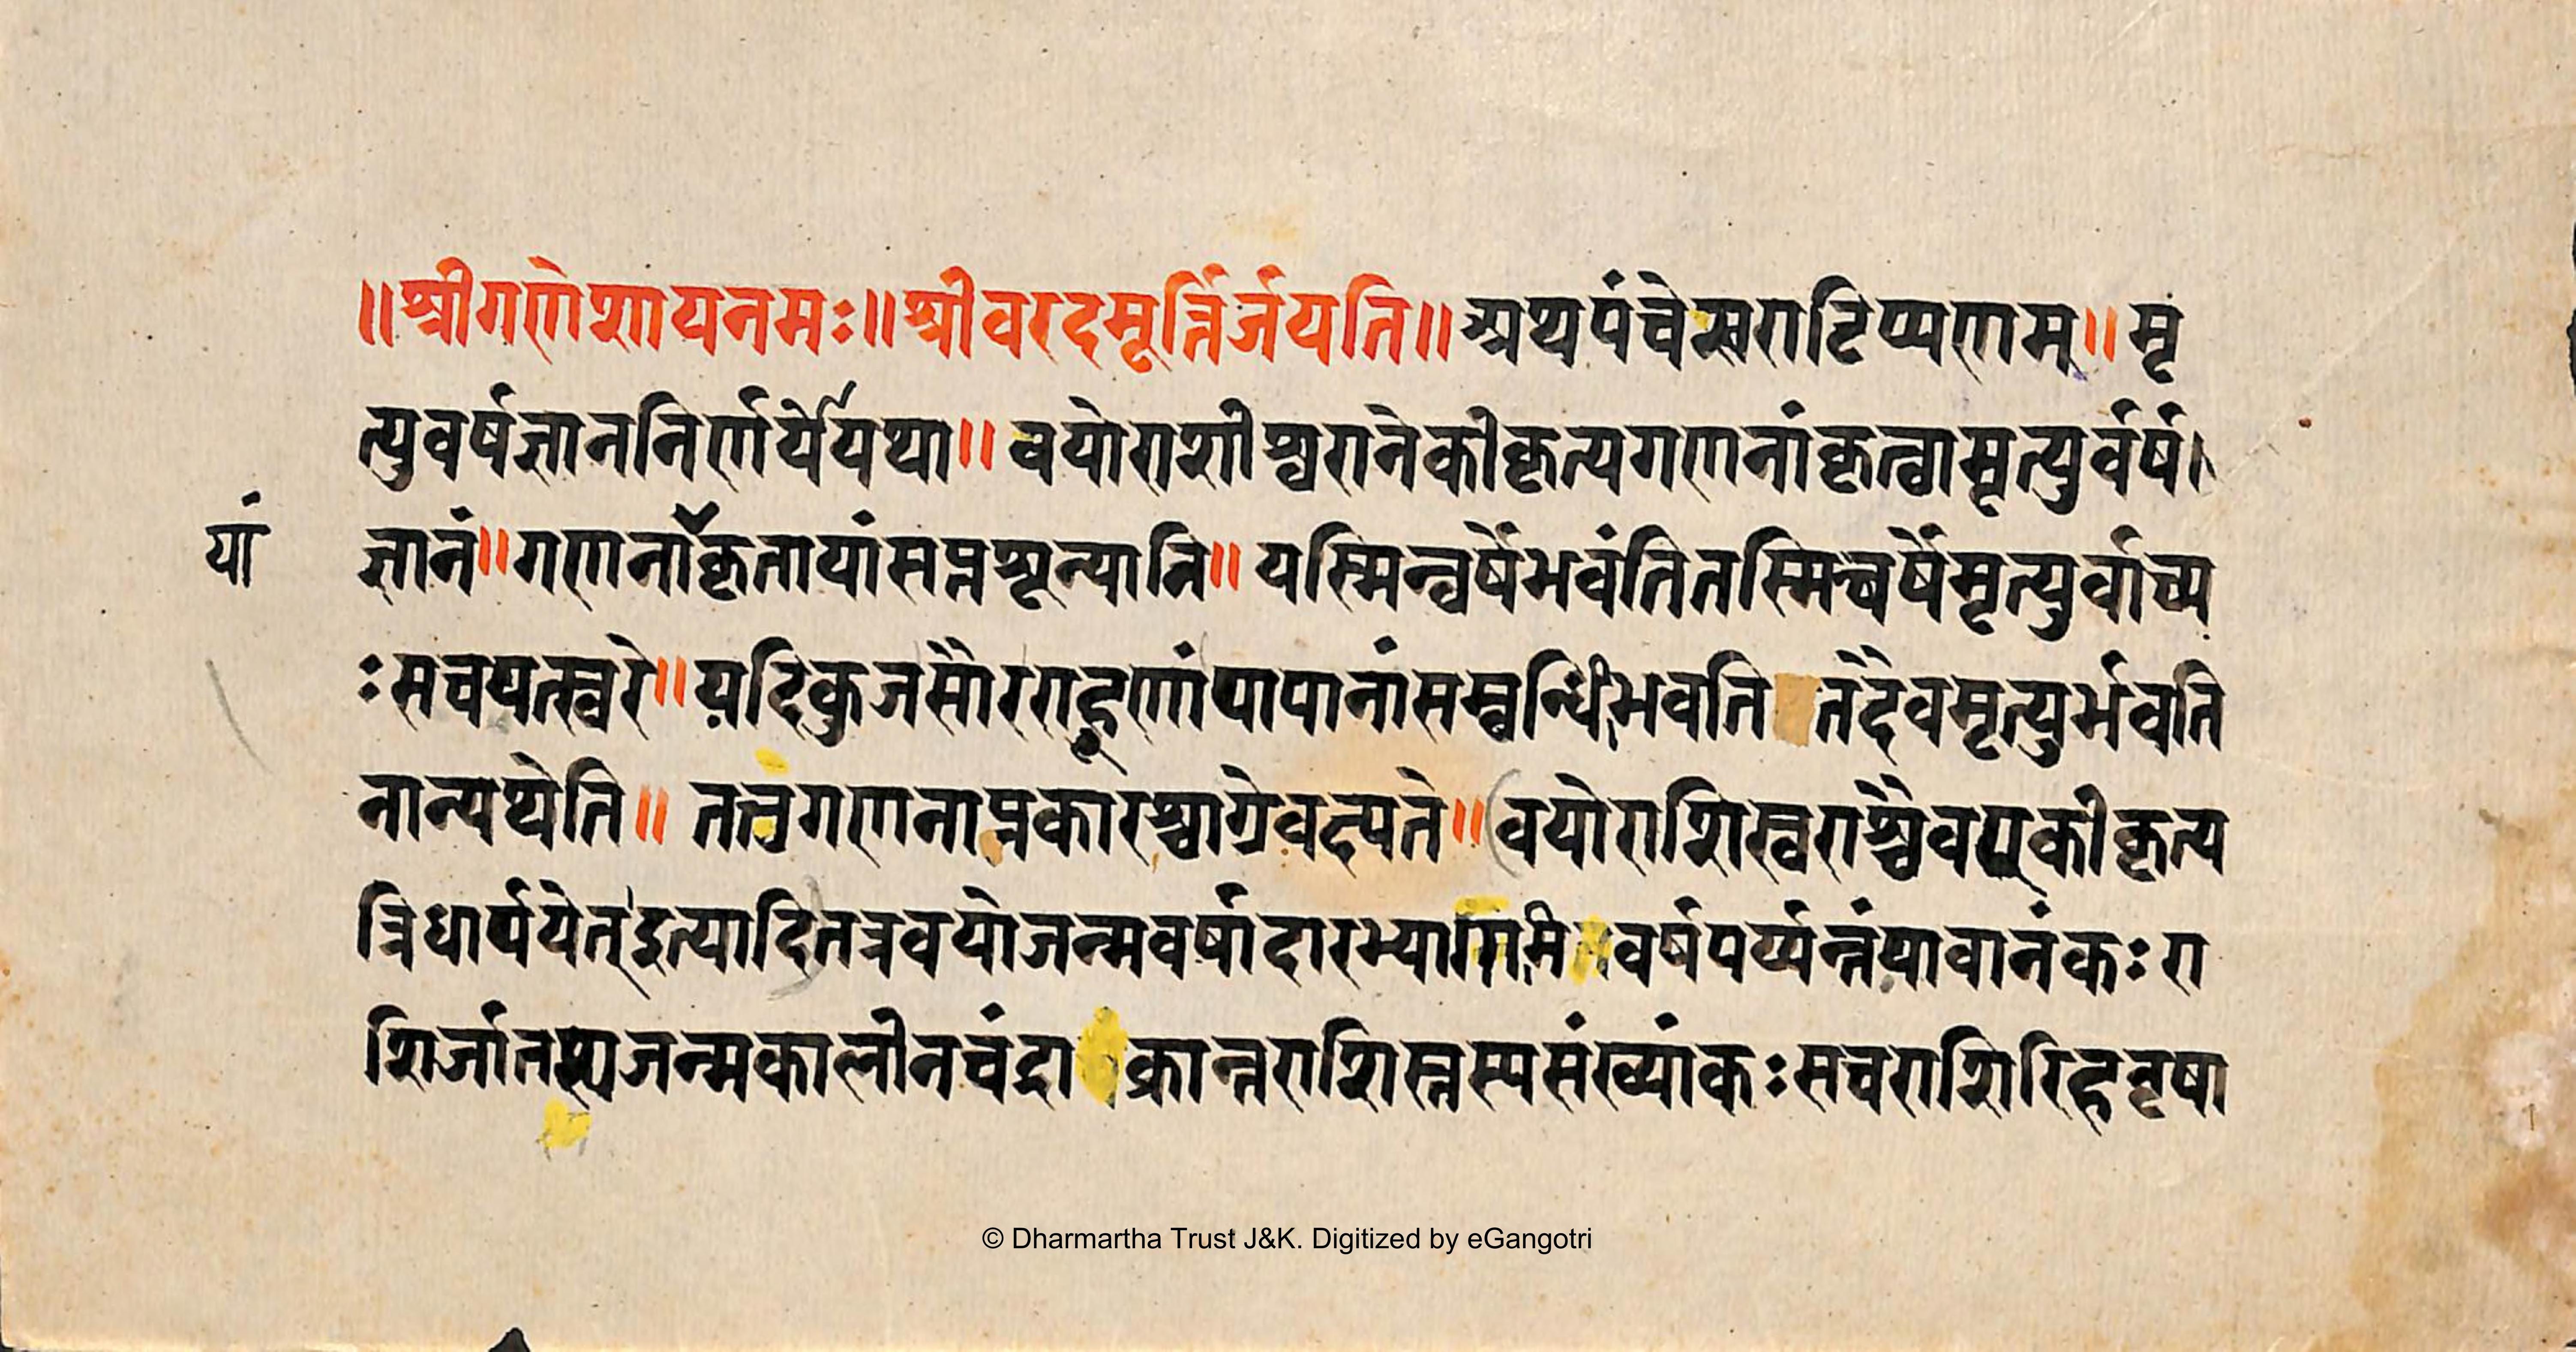 ॥श्रीगणेशायनमः॥श्रीवरदमूर्त्तिर्जयति॥अथपंचेस्वराटिप्पणम्॥मृ
त्युवर्षज्ञाननिर्णयेयथा॥वयोराशीश्वरानेकीकृत्यगणनांकृत्वामृत्युर्वर्ष।
यां
ज्ञानं॥गणनांकृतायांसप्तशून्यानि॥यस्मिन्वर्षेभवंतितस्मिन्वर्षेमृत्युर्वाच्य
ःसचयत्स्वरे॥यदिकुजसौरराहूणांपापानांसम्बन्धिभवति तदैवमृत्युर्भवति
नान्यथेति॥तत्रगणनाप्रकारश्चाग्रेवक्ष्यते॥वयोराशिस्वराश्चैवएकीकृत्य
त्रिधार्पयेत्इत्यादितत्रवयोजन्मवर्षादारभ्याग्रिमवर्षपर्य्यन्तंयावानंकःरा
शिर्जातस्यजन्मकालीनचंद्राक्रान्तराशिस्तस्यसंख्यांकःसचराशिरिहवृषा
© Dharmartha Trust J&K. Digitized by eGangotri